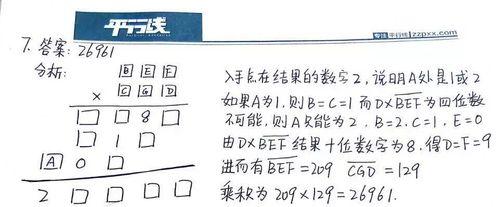 平行线
专注 平行线 zzpxx.com
7. 答案: 26961
分析:
B E F
× C G D
8
1
A 0
2
入手点在结果的数字2，说明A处是1或2
如果A为1，则B=C=1 而D×BEF为四位数
不可能，则A只能为2，B=2.C=1，E=0
由D×BEF结果十位数字为8，得D=F=9
进而有BEF=209 CGD=129
乘积为209×129=26961.